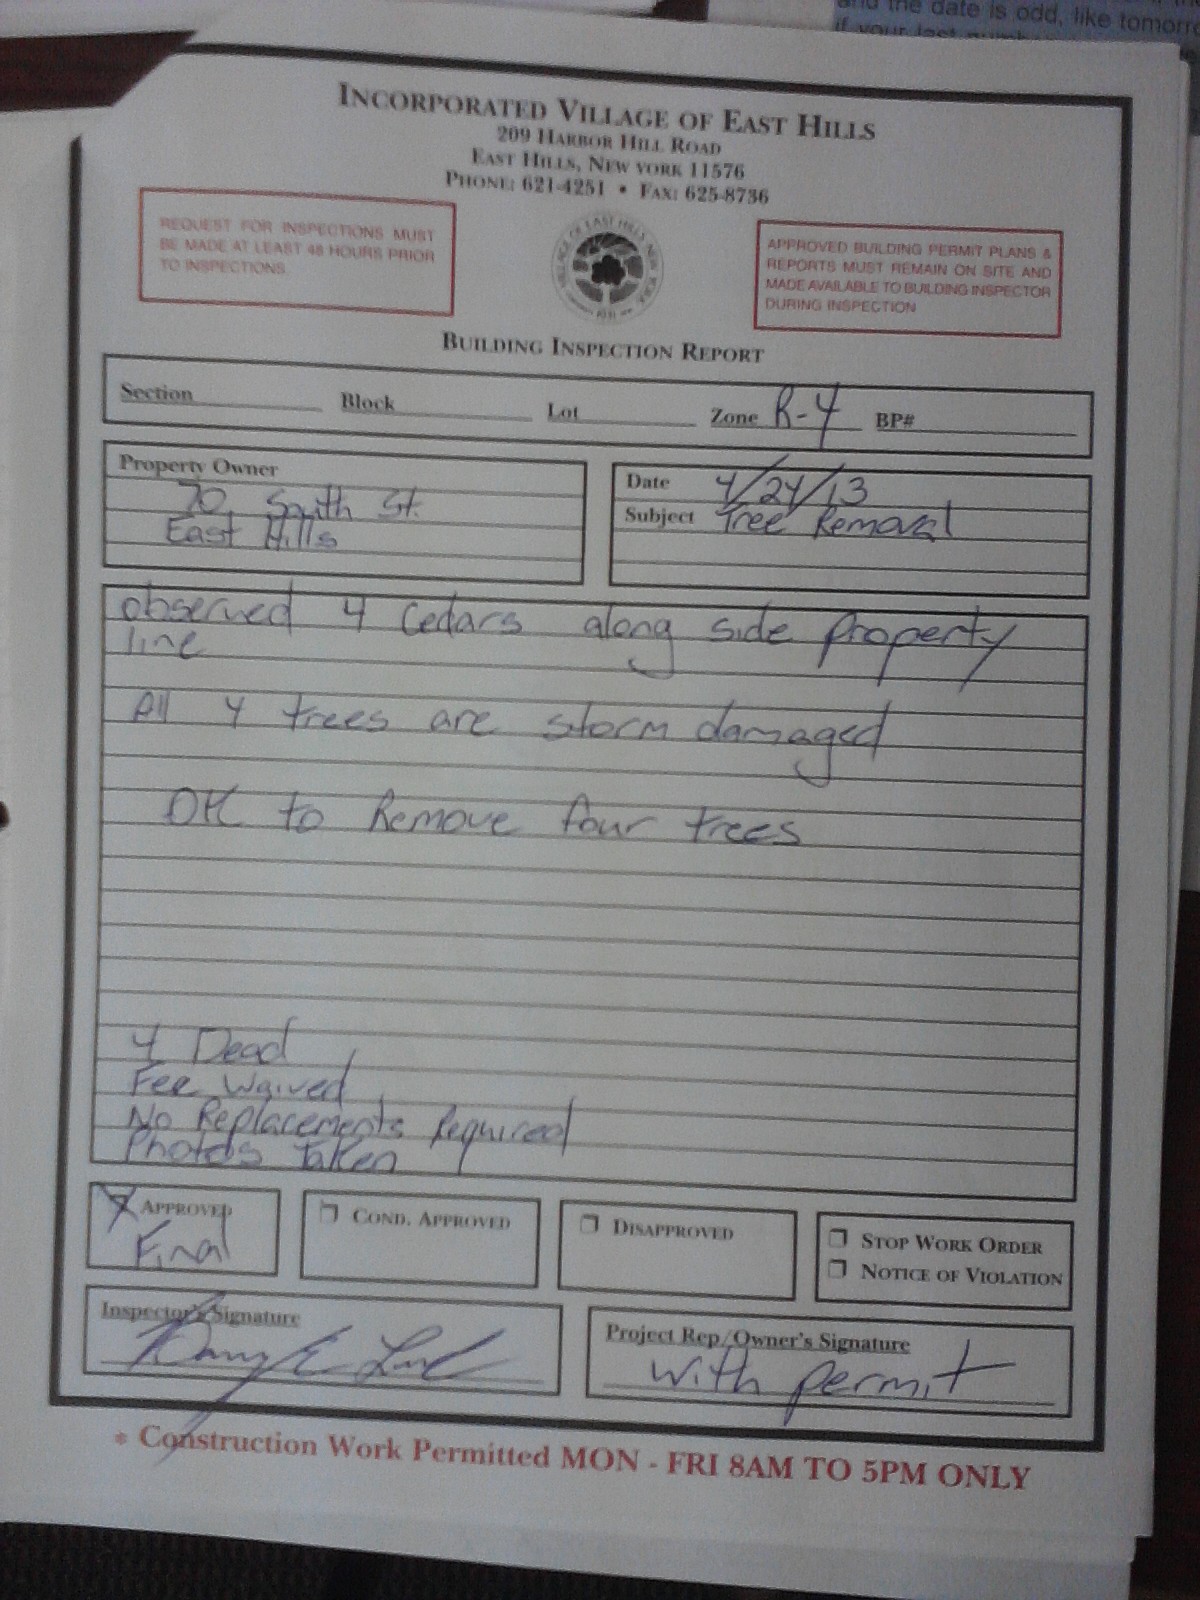 and the date is odd, like tomorro
if your last number
INCORPORATED VILLAGE OF EAST HILLS
209 HARBOR HILL ROAD
EAST HILLS, NEW YORK 11576
PHONE: 621-4251 • FAX: 625-8736
REQUEST FOR INSPECTIONS MUST
BE MADE AT LEAST 48 HOURS PRIOR
TO INSPECTIONS.
VILLAGE OF EAST HILLS, NEW YORK
1931
APPROVED BUILDING PERMIT PLANS &
REPORTS MUST REMAIN ON SITE AND
MADE AVAILABLE TO BUILDING INSPECTOR
DURING INSPECTION
BUILDING INSPECTION REPORT
Section Block Lot Zone R-4 BP#
Property Owner
70 South St.
East Hills
Date 4/24/13
Subject Tree Removal
observed 4 Cedars along side property
line
All 4 trees are storm damaged
OK to Remove four trees
4 Dead
Fee Waived
No Replacements Required
Photos Taken
APPROVED
Final
COND. APPROVED
DISAPPROVED
STOP WORK ORDER
NOTICE OF VIOLATION
Inspector's Signature
Project Rep/Owner's Signature
with permit
* Construction Work Permitted MON - FRI 8AM TO 5PM ONLY